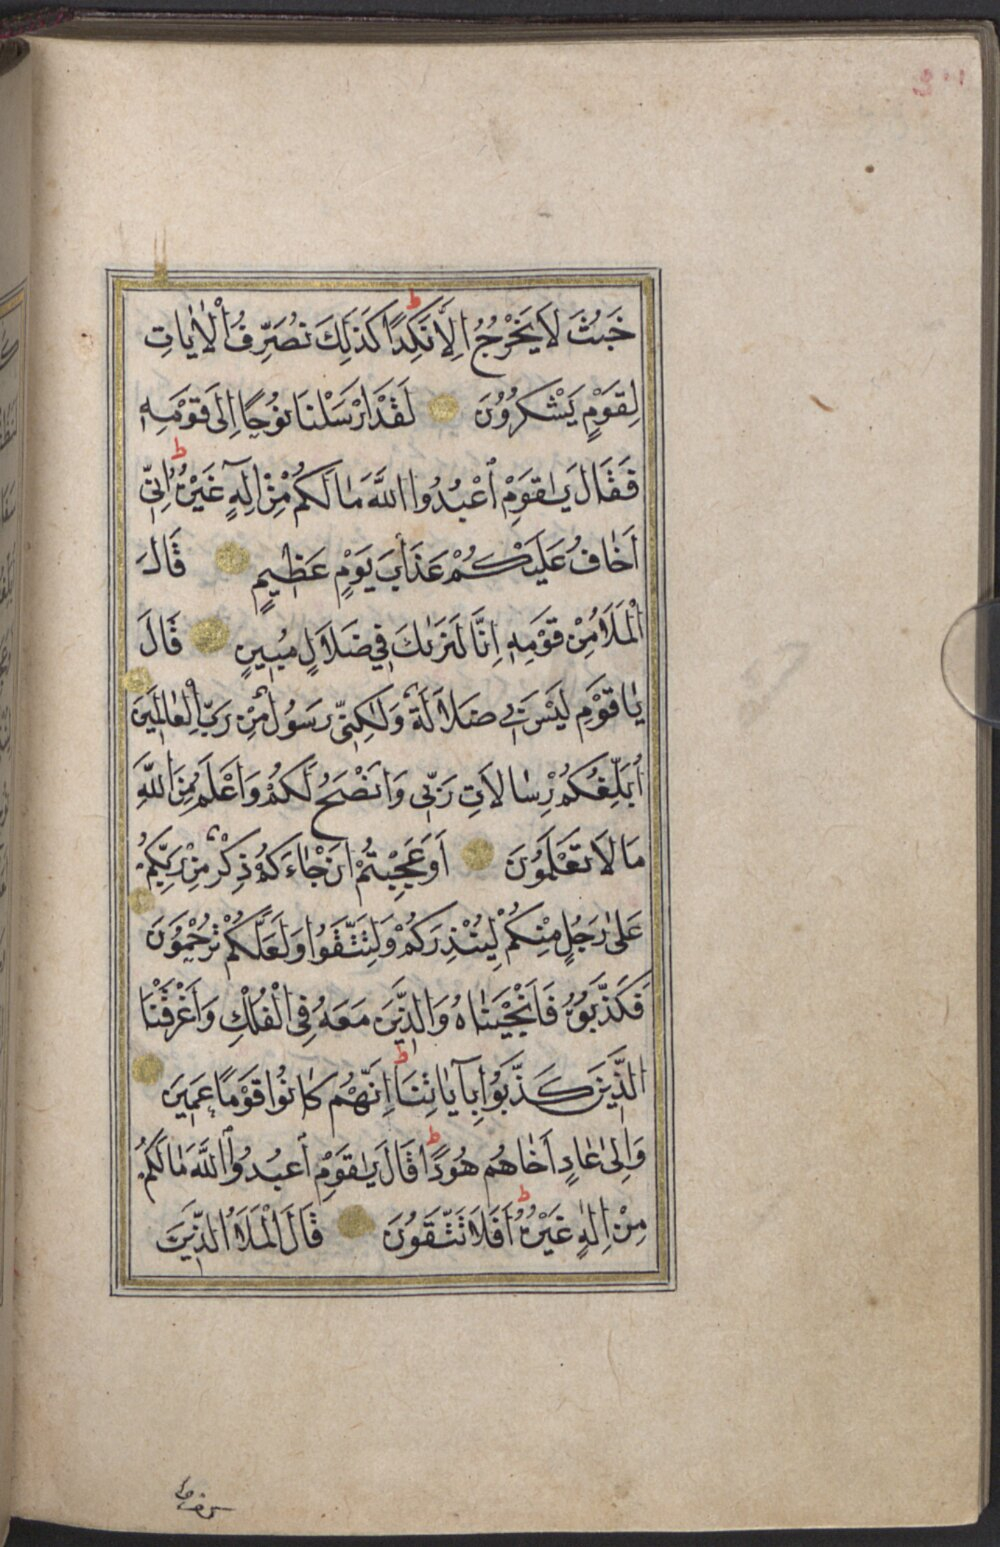 خَبُثَ لَا يَخْرُجُ اِلَّا نَكِدًا ط كَذٰلِكَ نُصَرِّفُ الْاٰيَاتِ
لِقَوْمٍ يَشْكُرُونَ لَقَدْ اَرْسَلْنَا نُوحًا اِلٰى قَوْمِهٖ
فَقَالَ يٰقَوْمِ اعْبُدُوا اللّٰهَ مَا لَكُمْ مِنْ اِلٰهٍ غَيْرُهُ ط اِنّٖى
اَخَافُ عَلَيْكُمْ عَذَابَ يَوْمٍ عَظٖيمٍ قَالَ
الْمَلَاُ مِنْ قَوْمِهٖ اِنَّا لَنَرٰىكَ فٖي ضَلَالٍ مُبٖينٍ قَالَ
يَا قَوْمِ لَيْسَ بٖي ضَلَالَةٌ وَلٰكِنّٖى رَسُولٌ مِنْ رَبِّ الْعَالَمٖينَ
اُبَلِّغُكُمْ رِسَالَاتِ رَبّٖى وَاَنْصَحُ لَكُمْ وَاَعْلَمُ مِنَ اللّٰهِ
مَا لَا تَعْلَمُونَ اَوَعَجِبْتُمْ اَنْ جَاءَكُمْ ذِكْرٌ مِنْ رَبِّكُمْ
عَلٰى رَجُلٍ مِنْكُمْ لِيُنْذِرَكُمْ وَلِتَتَّقُوا وَلَعَلَّكُمْ تُرْحَمُونَ
فَكَذَّبُوهُ فَاَنْجَيْنَاهُ وَالَّذٖينَ مَعَهُ فِي الْفُلْكِ وَاَغْرَقْنَا
الَّذٖينَ كَذَّبُوا بِاٰيَاتِنَا ط اِنَّهُمْ كَانُوا قَوْمًا عَمٖينَ
وَاِلٰى عَادٍ اَخَاهُمْ هُودًا ط قَالَ يٰقَوْمِ اعْبُدُوا اللّٰهَ مَا لَكُمْ
مِنْ اِلٰهٍ غَيْرُهُ ط اَفَلَا تَتَّقُونَ قَالَ الْمَلَاُ الَّذٖينَ